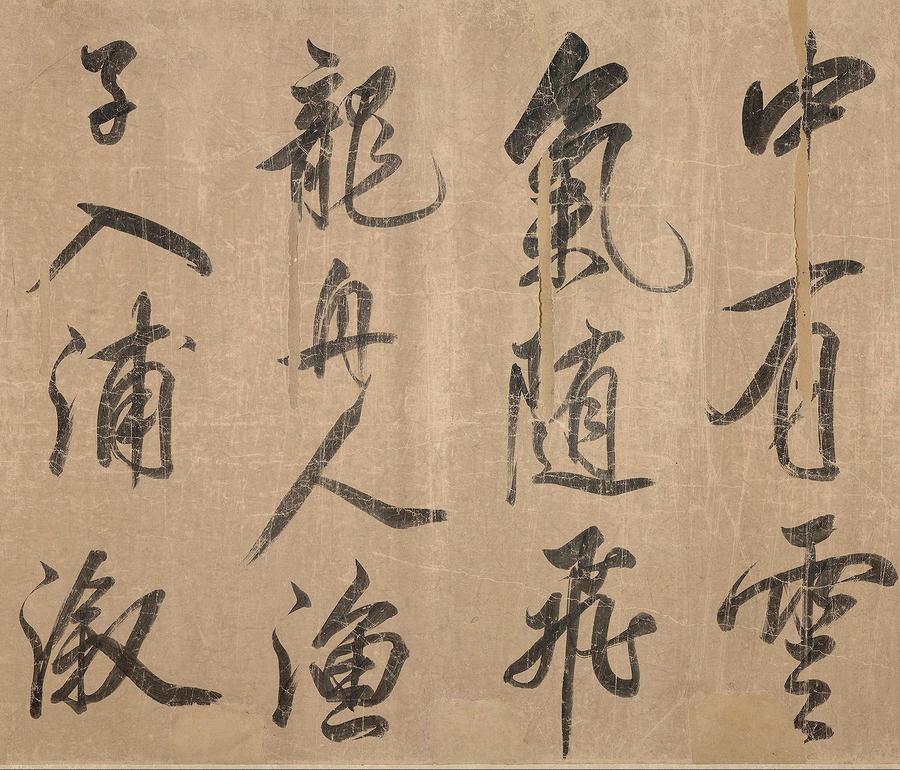 中有雲
氣随飛
龍舟人漁
子入浦溆